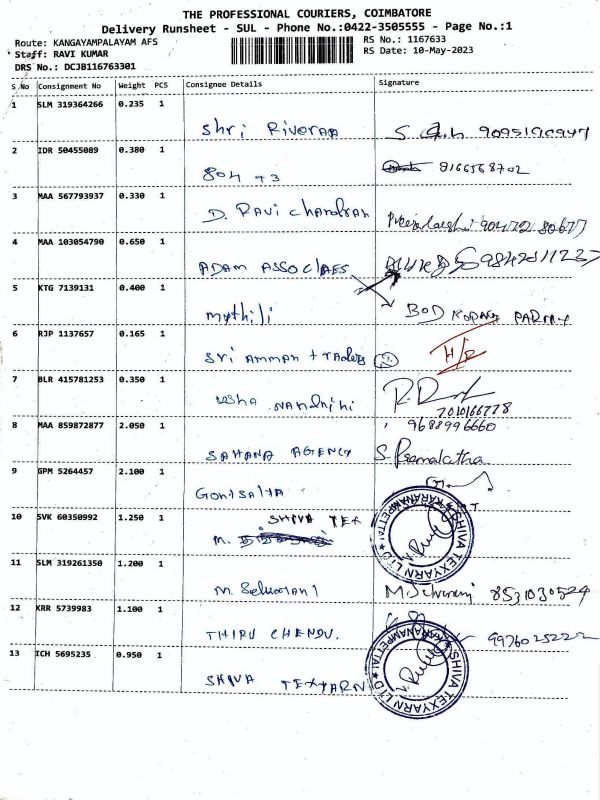 THE PROFESSIONAL COURIERS, COIMBATORE
Delivery Runsheet - SUL - Phone No.:0422-3505555 - Page No.:1
Route: KANGAYAMPALAYAM AFS
RS No.: 1167633
Staff: RAVI KUMAR
RS Date: 10-May-2023
DRS No.: DCJB116763301
S No Consignment No Weight PCS Consignee Details Signature
1 SLM 319364266 0.235 1
Shri Riveraa
2 IDR 50455089 0.380 1
804 +3 8166568702
3 MAA 567793937 0.330 1
D. Ravi chandran
4 MAA 103054790 0.650 1
ADAM ASSOCIAES
5 KTG 7139131 0.400 1
mythili BOD
6 RJP 1137657 0.165 1
Sri Amman + Traders
7 BLR 415781253 0.350 1
usha Nandhini
7010166778
8 MAA 859872877 2.050 1
9688996660
SAHANA AGENCY S. Premalatha
9 GPM 5264457 2.100 1
10 SVK 60350992 1.250 1
SHIVA TEX
M.
SHIVA TEXYARN LTD
KARANAMPETTAI
11 SLM 319261350 1.200 1
M. Selvarani 8531030524
12 KRR 5739983 1.100 1
THIRU CHENDU. 9976025222
13 ICH 5695235 0.950 1
SHIVA TEXYARN
SHIVA TEXYARN LTD
KARANAMPETTAI